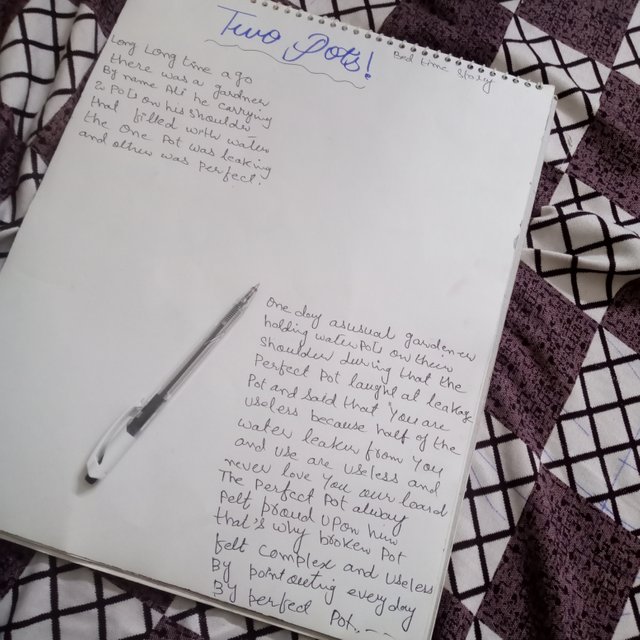 Two Pots!
Bed time Story
Long Long time ago
there was a gardner
By name Ali he carrying
2 Pots on his shoulder
that filled with water
the One Pot was leaking
and other was Perfect.
One day as usual gardener
holding water Pots on their
shoulder during that the
Perfect Pot laught at leakage
Pot and said that You are
useless because half of the
water leaker from You
and use are useless and
never love You our
The Perfect Pot alway
felt proud upon him
that's why broken Pot
felt complex and useless
By point outing every day
By perfect Pot.